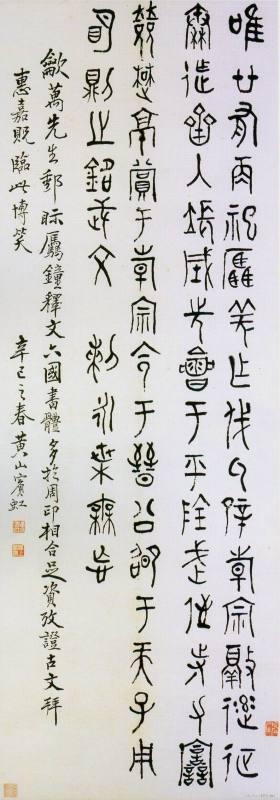 唯廿又再祀驫羌乍戎氒辟倝宗敲逹征
秦迮齊入長城先會于平陰武侄寺力譶
敓楚京賞于倝宗令于晉公卲于天子用
明則之銘武文剌永枼忘
歗萬先生郵眎驫鐘釋文六國書體多於周印相合足資攷證古文拜
惠嘉貺臨此博笑
辛巳之春黃山賓虹